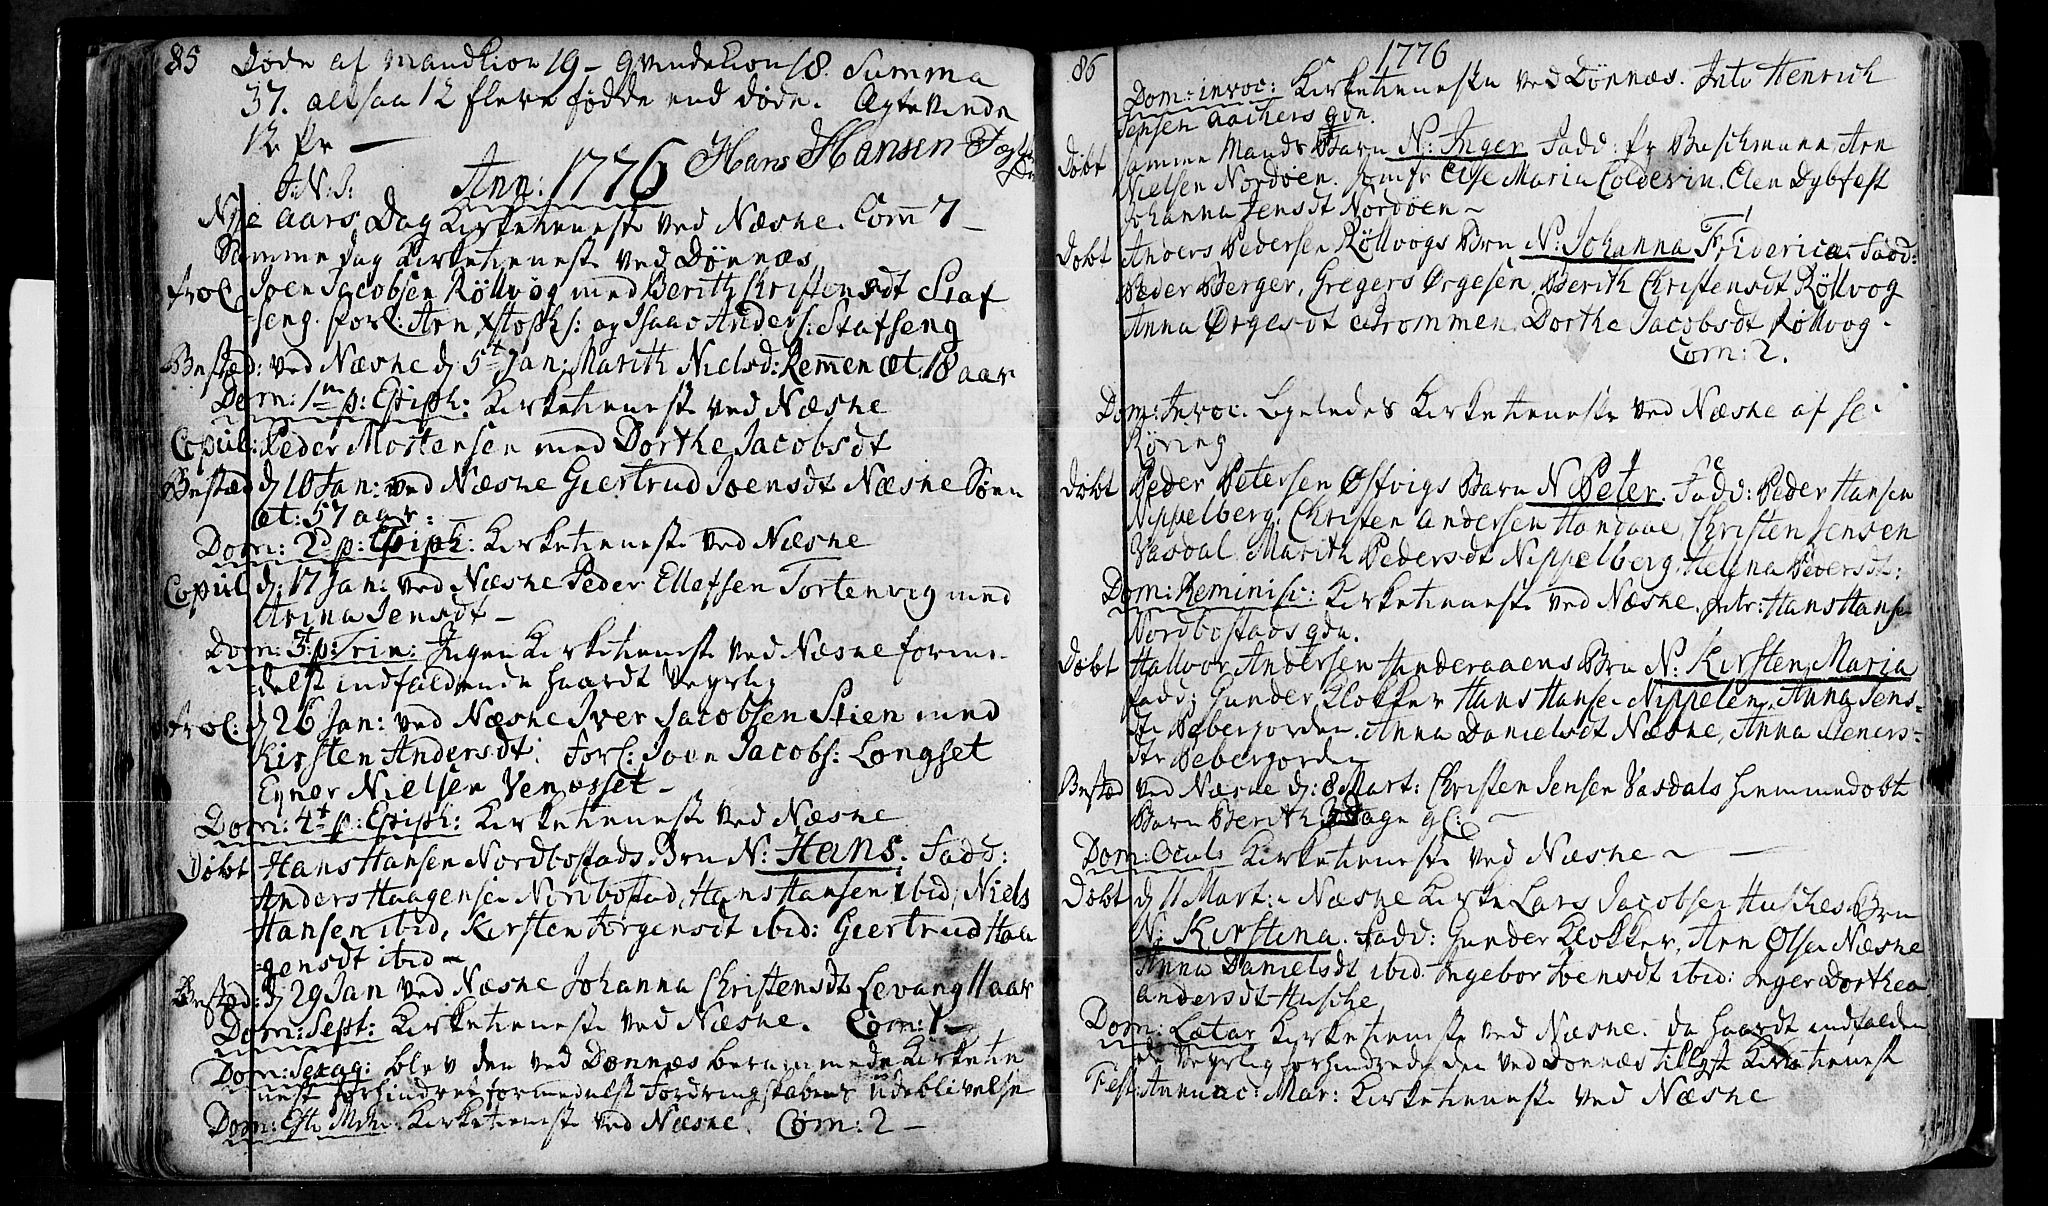 85 Døde af Mandkion 19 – Qvindekion 18. Summa
37. altsaa 12 flere fødde end døde. Ægteviede
12 Pr —
Ann: 1776 Hans Hansen
J: N: J:
Nye aars Dag Kirketieneste ved Næsne. Com̄ 7 –
Samme dag Kirketieneste ved Dønnæs
Trol: Joen Jacobsen Røllvog med Berith Christensdt Staf
seng. forl: Arn Xstophs: og Isaac Anders: Stafseng
Bested: ved Næsne d: 5t Jan: Marith Nielsd: Remmen æt. 18 aar
Dom: 1me p: Epiph: Kirketieneste ved Næsne
Copul: Peder Mortensen med Dorthe Jacobsdt
Bested d 10 Jan: ved Næsne Giertrud Joensdt Næsne Søen
æt: 57 aar: —
Dom: 2d p: Epiph: Kirketieneste ved Næsne
Copul d: 17 Jan: ved Næsne Peder Ellefsen Tortenvig med
Arina Jensdt –
Dom: 3t: p: Trin: Ingen Kirketieneste ved Næsne forme-
delst indfaldende haardt Veyrlig
Trol: d 26 Jan: ved Næsne Iver Jacobsen Stien med
Kirsten Andersdt: forl: Joen Jacobs: Longset
Eyner Nielsen Venæsset –
Dom: 4t p: Epiph: Kirketieneste ved Næsne
Døbt Hans Hansen Nordbostads Brn N: Hans. Fadd:
Anders Haagensen Nordbostad, Hans Hansen ibid, Niels
Hansen ibid, Kirsten Jørgensdt ibid: Giertrud Haa
gensdt ibid –
Bested: d 29 Jan ved Næsne Johanna Christensdt Levang 11 aar
Dom: Sept: Kirketieneste ved Næsne. Com: 1 –
Dom: Sexag: blev den ved Dønnæs berammede Kirketie
nest forhindret formedelst Fordringskabets Udeblivelse
Dom: Esto Mihi Kirketieneste ved Næsne. Com: 2 –
86 1776
Dom: invoc: Kirketieneste ved Dønnæs. Intr Henrich
Jepsen Aachers qda.
Døbt samme Mands Barn N: Inger Fadd: fr Buschmann, Arn
Nielsen Nordøen. Jomfr Else Maria Coldevin. Elen Dybfest
Johanna Jensdt Nordøen ~
Døbt Anders Pedersen Røllvogs Brn N: Johanna Friderica. Fadd:
Peder Berger, Gregers Ørgesen, Berith Christensdt Røllvog
Anna Ørgesdt Brommen. Dorthe Jacobsdt Røllvog.
Com: 2.
Dom: Invoc. Ligeledes Kirketieneste ved Næsne af Sr
Røring
Døbt Peder Petersen Østvigs Barn N Peter. Fadd: Peder Hansen
Nippelberg. Christen Andersen Handaae Christen Jensen
Vasdal. Marith Pedersdt Nippelberg. Helena Pedersdt:
Dom: Reminisc: Kirketieneste ved Næsne. Intr: Hans Hanse
Nordbostads qda.
Døbt Hallvor Andersen Hinderaaens Brn N: Kirsten Maria
Fadd; Gunder Klokker Hans Hanse Nippelen, Anna Jens-
dt Bebergorden. Anna Danielsdt Næsne, Anna Heners-
dtr Bebergorden
Bested ved Næsne d: 8 Mart: Christen Jensen Vasdals hiemmedøbte
Barn Berith 3 Dage gl: —
Dom: Oculi Kirketieneste ved Næsne ~ —
Døbt d 11 Mart: i Næsne Kirke Lars Jacobsen Husches Brn
N: Kirstina. Fadd: Gunder Klokker, Arn Olsen Næsne
Anna Danielsdt ibid. Ingebor Joensdt ibid: Inger Dorthea
Andersdt Husche
Dom: Lætar Kirketieneste ved Næsne. da haardt indfalden
de Veyrlig forhindrede den ved Dønnæs tillyst Kirketienest
Fest: Annunc: Mar: Kirketieneste ved Næsne